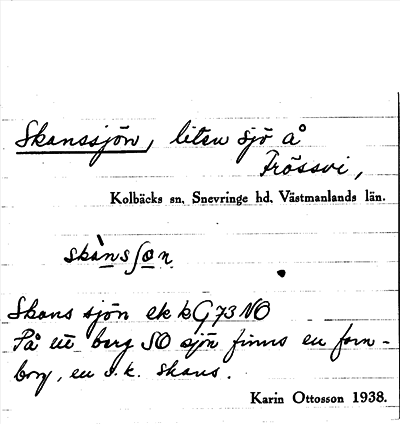 Skanssjön, liten sjö å
Frössvi,
Kolbäcks sn, Snevringe hd, Västmanlands län.
skànsʃon
Skans sjön ek k G 73 NO
På ett berg SO sjön finns en forn-
borg, en s.k. skans.
Karin Ottosson 1938.